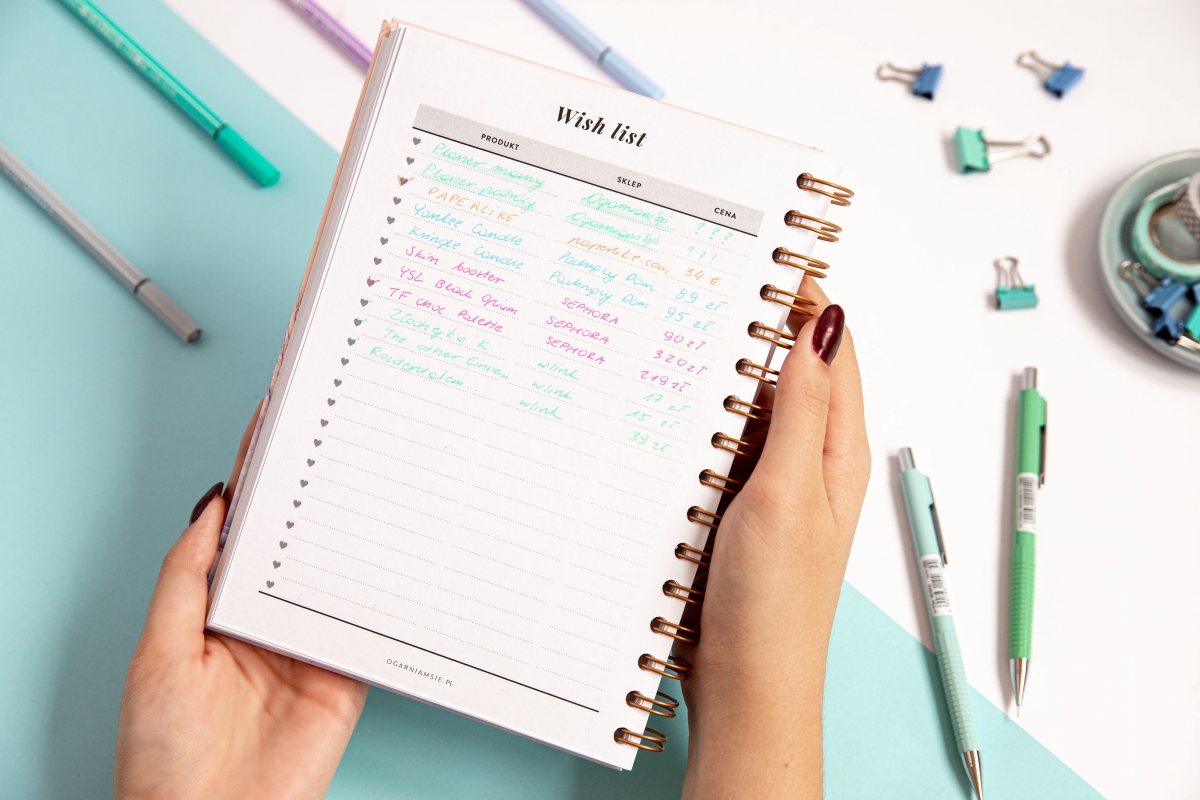 Wish list
PRODUKT SKLEP CENA
Planer mamy Ogarniamsię ???
Planer podróży Ogarniamsię ???
PAPERLIKE paperlike.com 34 €
Yankee Candle Pachnący Dom 89 zł
Kringle Candle Pachnący Dom 95 zł
Skin booster SEPHORA 90 zł
YSL Black Opium SEPHORA 320 zł
TF Choc Palette SEPHORA 219 zł
K. wlink 17 zł
The other wlink 15 zł
wlink 39 zł
OGARNIAMSIE.PL